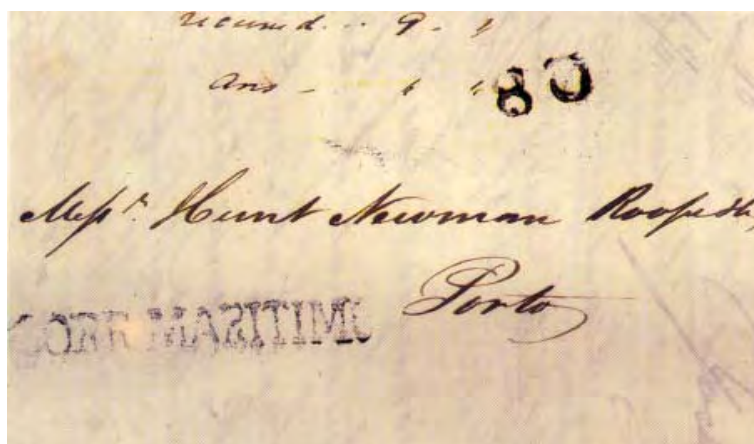 received .. 9 . "
Ans - " "
80
Messrs. Hunt Newman Roope &Co,
Porto
CORRO MARITIMO